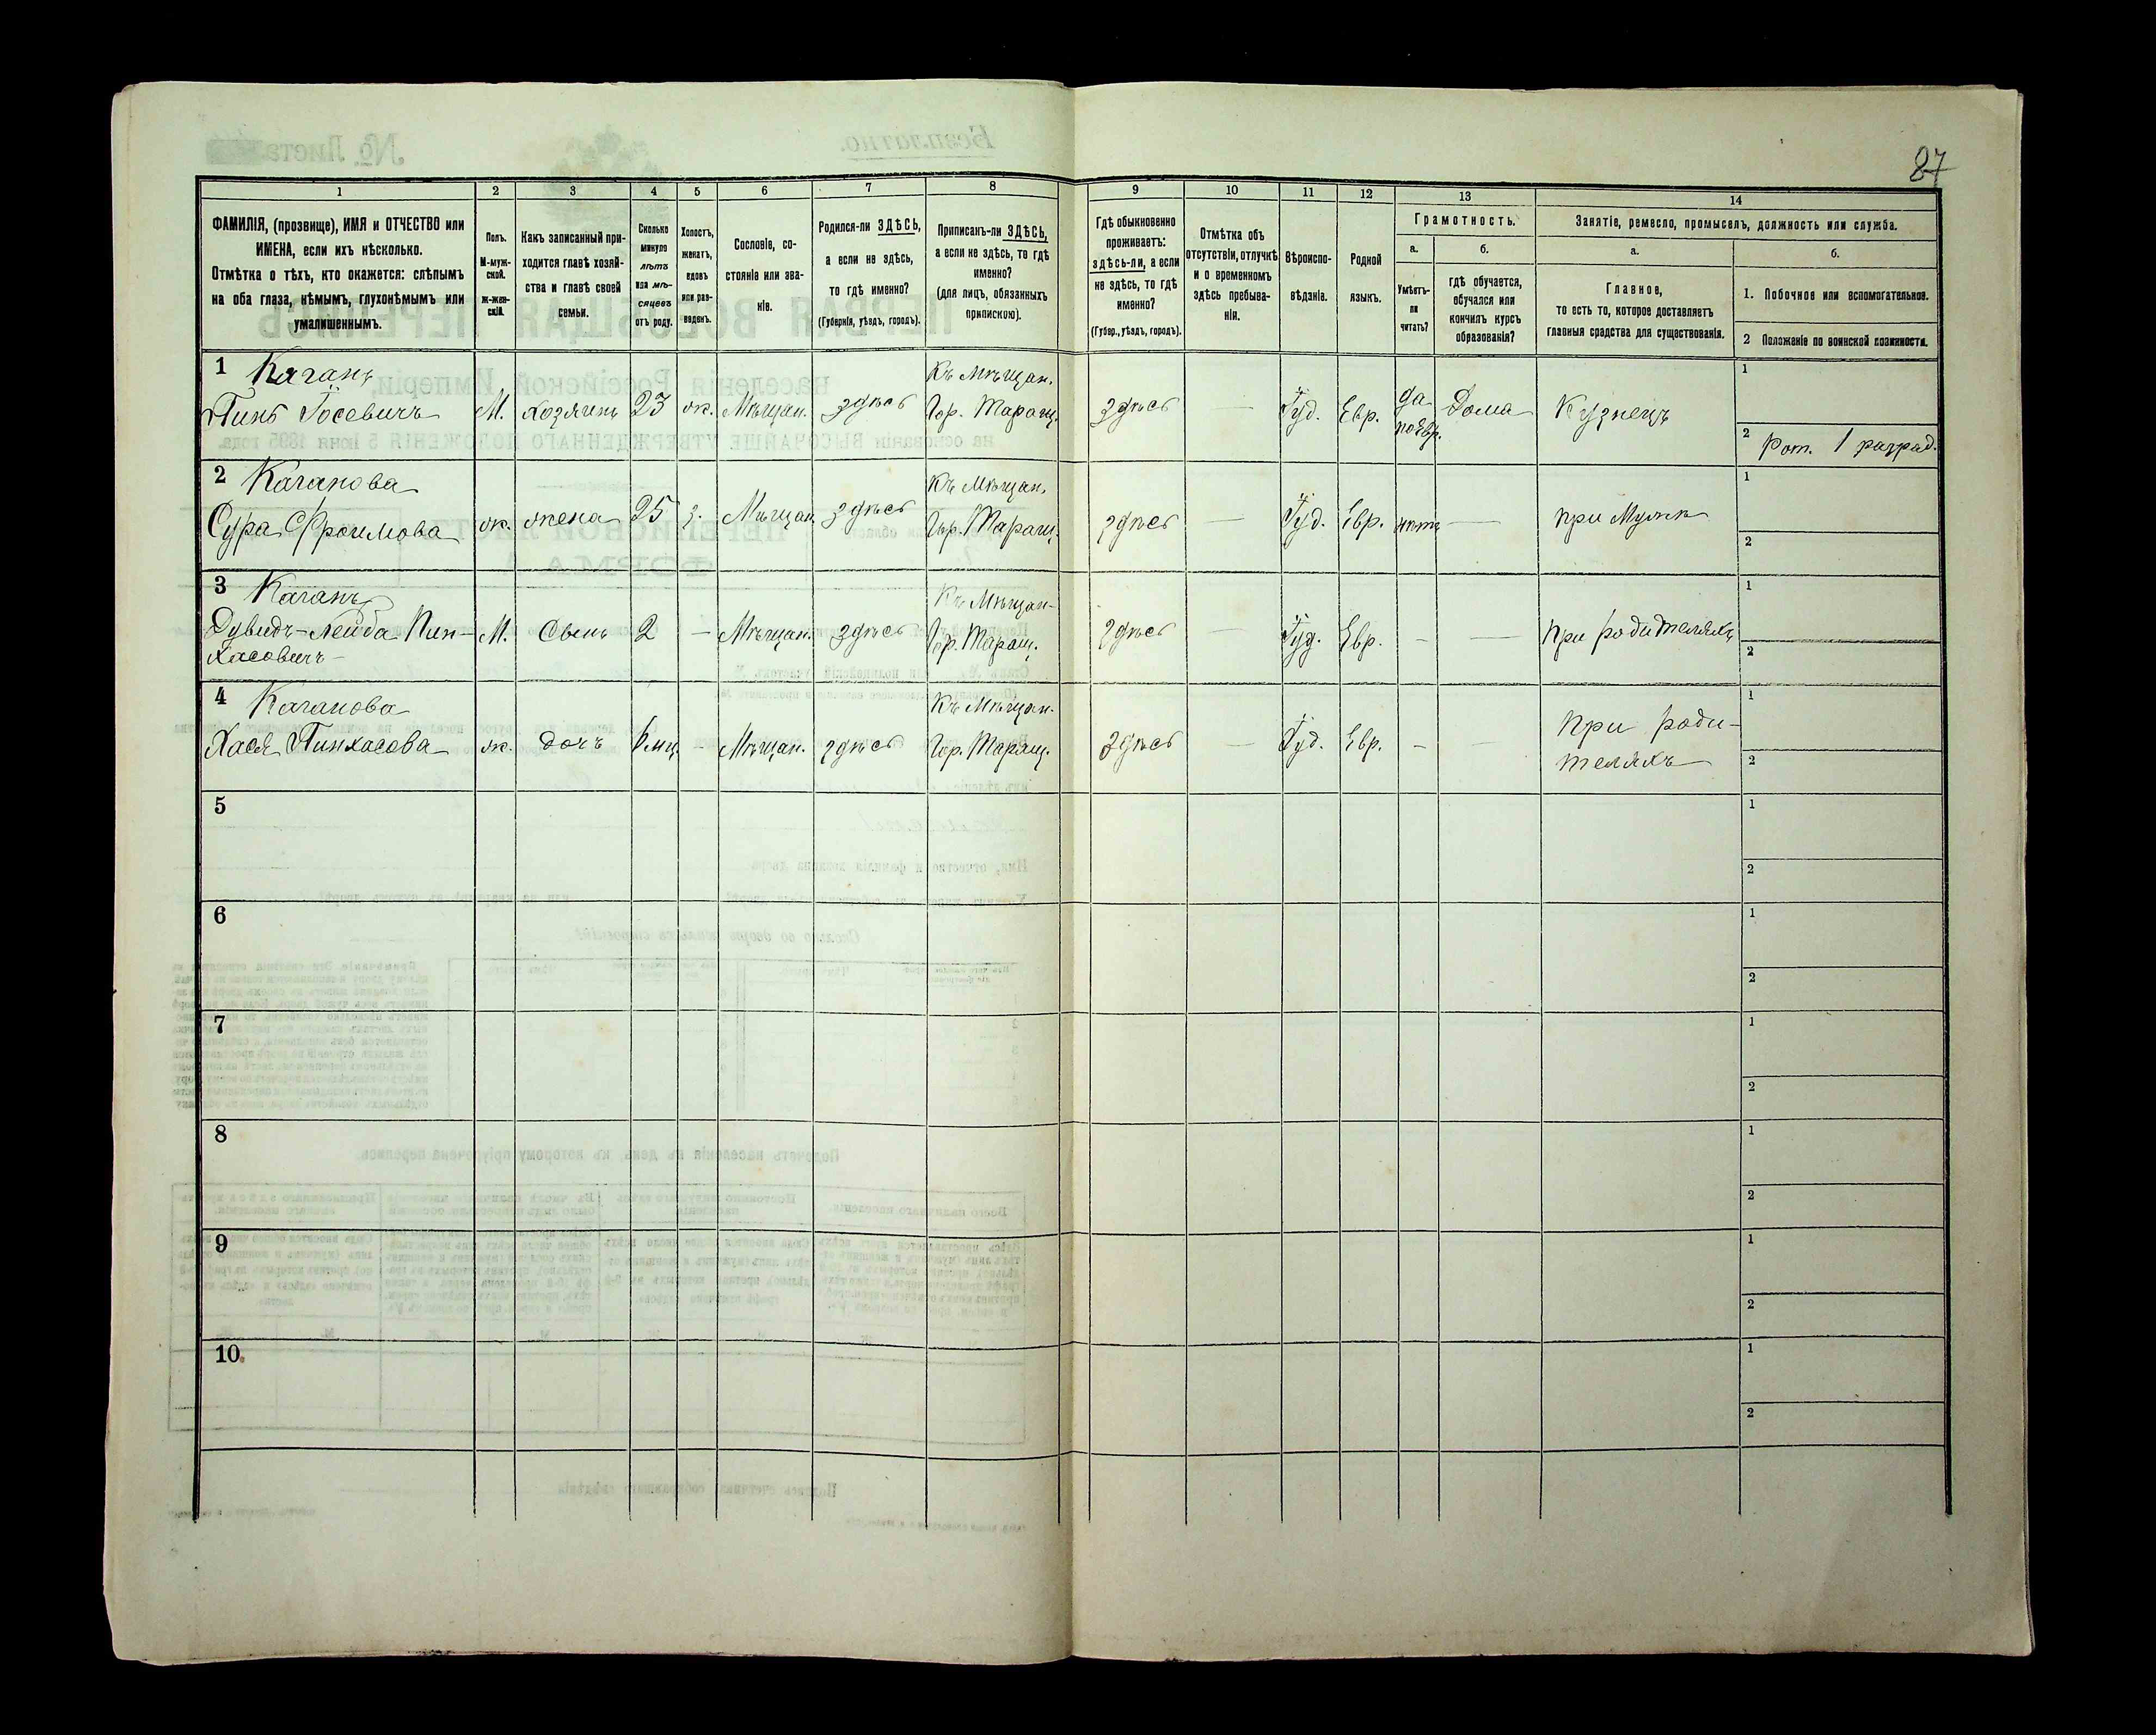 87
1 2 3 4 5 6 7 8 9 10 11 12 13 14
ФАМИЛІЯ, (прозвище), ИМЯ и ОТЧЕСТВО или
ИМЕНА, если ихъ нѣсколько.
Отмѣтка о тѣхъ, кто окажется: слѣпымъ
на оба глаза, нѣмымъ, глухонѣмымъ или
умалишеннымъ.
Полъ.
М-муж-
ской.
ж-жен-
скій.
Какъ записанный при-
ходится главѣ хозяй-
ства и главѣ своей
семьи.
Сколько
минуло
лѣтъ
или мѣ-
сяцевъ
отъ роду.
Холостъ,
женатъ,
вдовъ
или раз-
веденъ.
Сословіе, со-
стояніе или зва-
ніе.
Родился-ли ЗДѢСЬ,
а если не здѣсь,
то гдѣ именно?
(Губернія, уѣздъ, городъ).
Приписанъ-ли ЗДѢСЬ,
а если не здѣсь, то гдѣ
именно?
(для лицъ, обязанныхъ
припискою).
Гдѣ обыкновенно
проживаетъ:
здѣсь-ли, а если
не здѣсь, то гдѣ
именно?
(Губер., уѣздъ, городъ).
Отмѣтка объ
отсутствіи, отлучкѣ
и о временномъ
здѣсь пребыва-
ніи.
Вѣроиспо-
вѣданіе.
Родной
языкъ.
Грамотность.
а.
Умѣетъ-
ли
читать?
б.
гдѣ обучается,
обучался или
кончилъ курсъ
образованія?
Занятіе, ремесло, промыселъ, должность или служба.
а.
Главное,
то есть то, которое доставляетъ
главныя средства для существованія.
б.
1. Побочное или вспомогательное.
2 Положеніе по воинской повинности.
1 Каганъ
Пинъ Іосевичъ М. хозяинъ 23 ж. Мѣщан. здѣсь
Къ Мѣщан.
Гор. Таращ.
здѣсь — Іуд. Евр.
да
по Евр.
Дома Кузнецъ
1
2 Рот. 1 разряд.
2 Каганова
Сура Сроимова ж. жена 25 з. Мѣщан. здѣсь
Къ Мѣщан.
Гор. Таращ.
здѣсь — Іуд. Евр. нѣтъ — при Мужѣ
1
2
3 Каганъ
Дувидъ-Лейба Пин-
хасовичъ
М. Сынъ 2 — Мѣщан. здѣсь
Къ Мѣщан-
Гор. Таращ.
здѣсь — Іуд. Евр. — — при родителяхъ
1
2
4 Каганова
Хася Пинхасова ж. дочь мц. — Мѣщан. здѣсь
Къ Мѣщан.
Гор. Таращ.
здѣсь — Іуд. Евр. — —
при роди-
теляхъ
1
2
5
1
2
6
1
2
7
1
2
8
1
2
9
1
2
10.
1
2